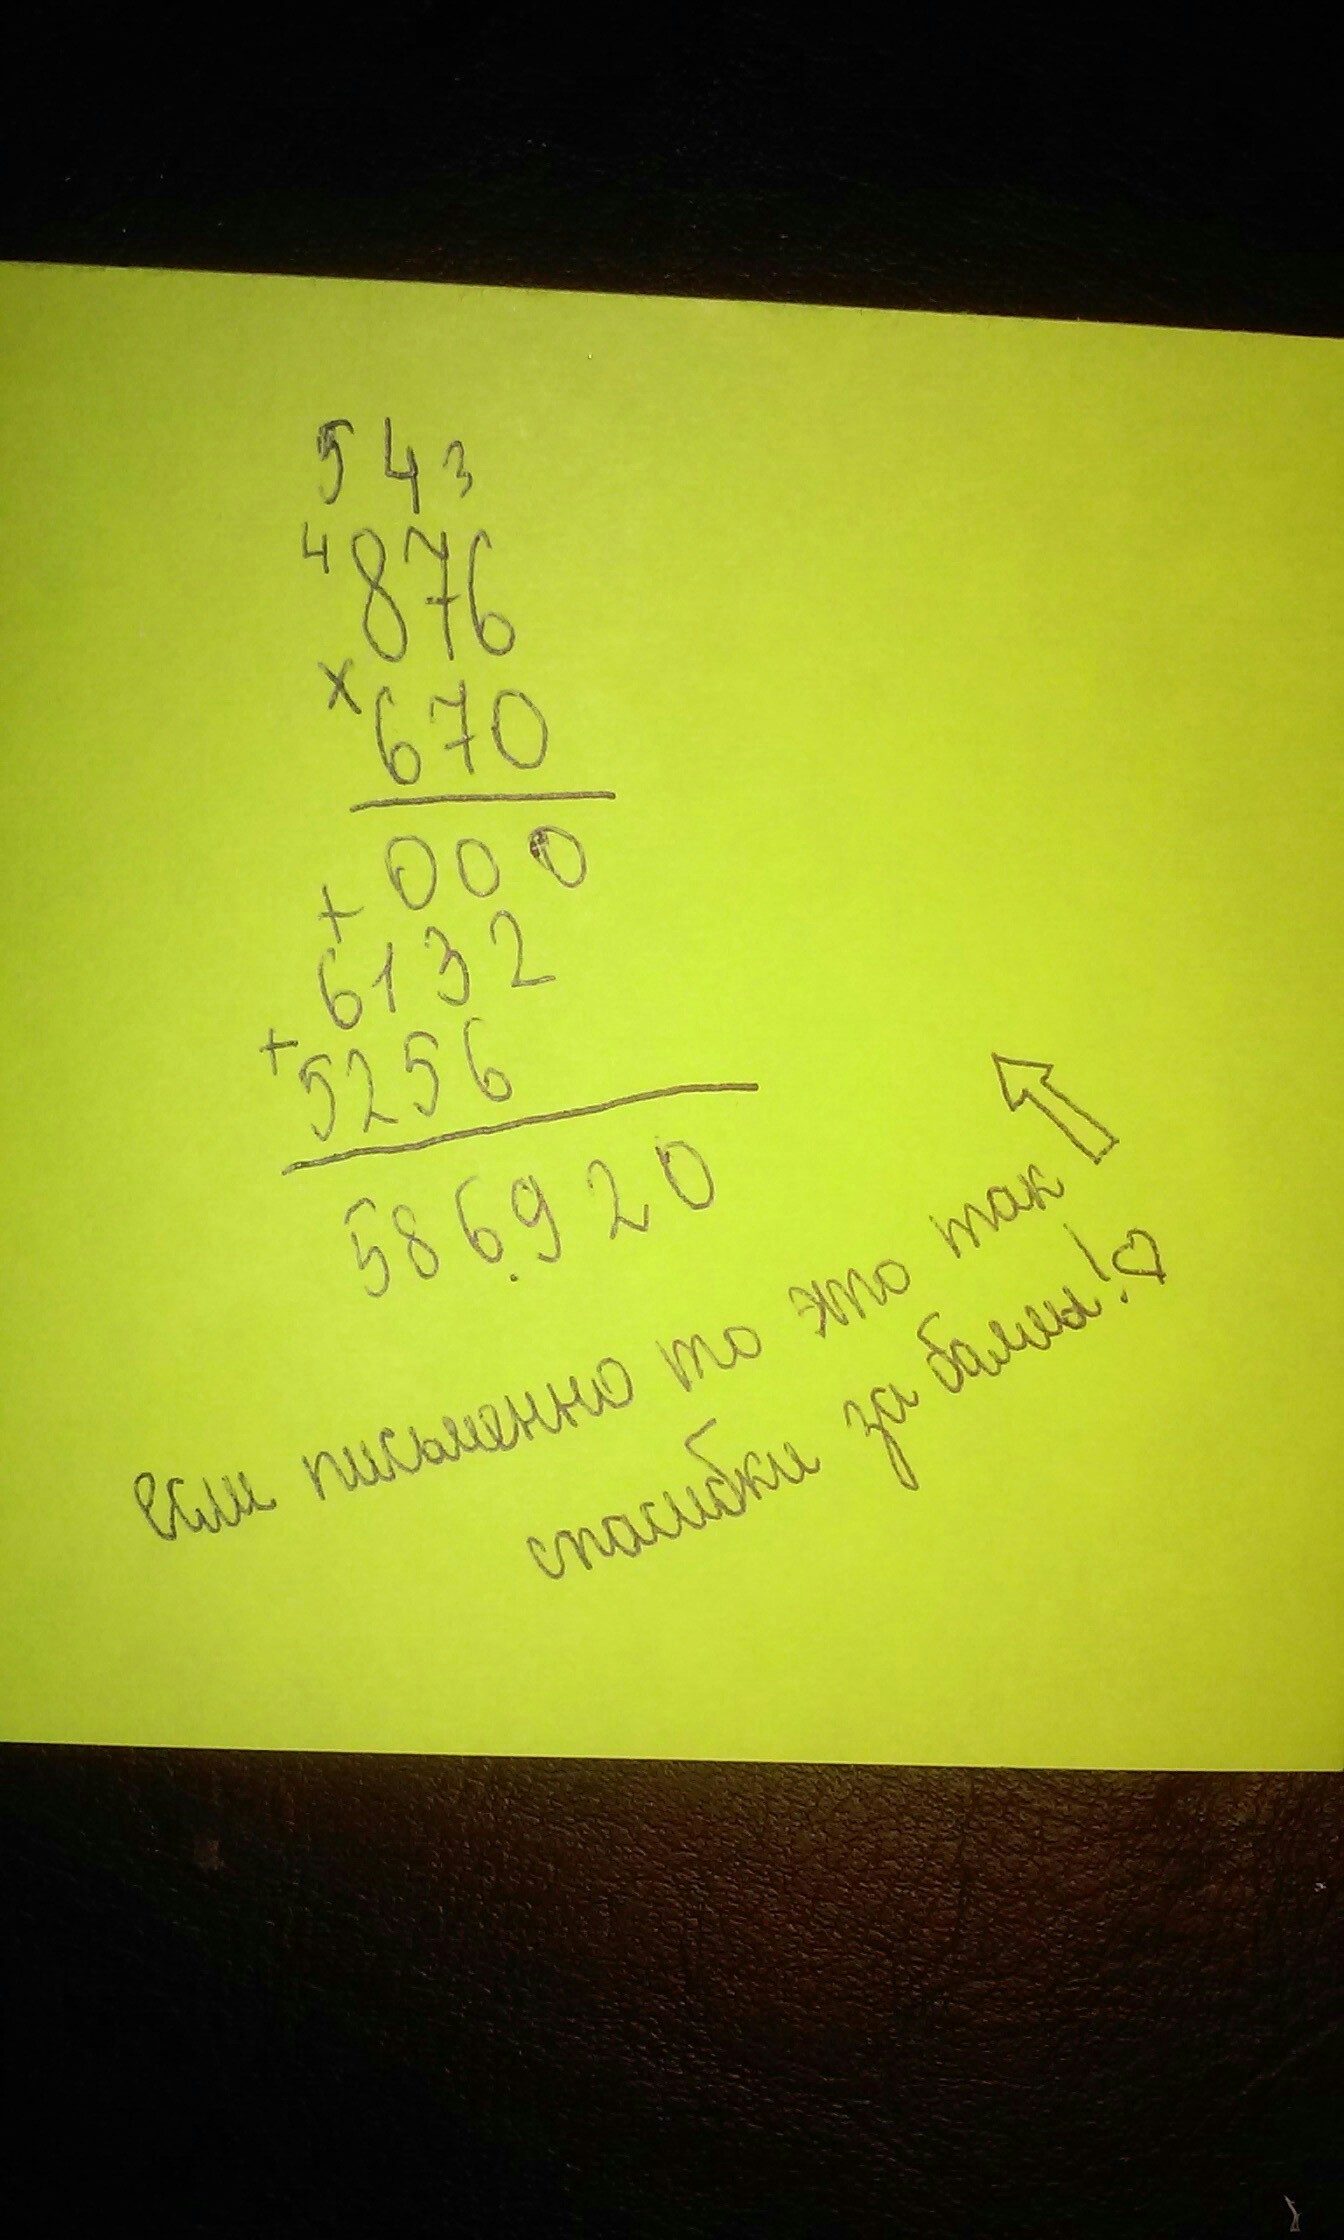 543
4 876
x 670
000
+ 6132
+ 5256
586.920
если письменно то это так
спасибки за баллы!